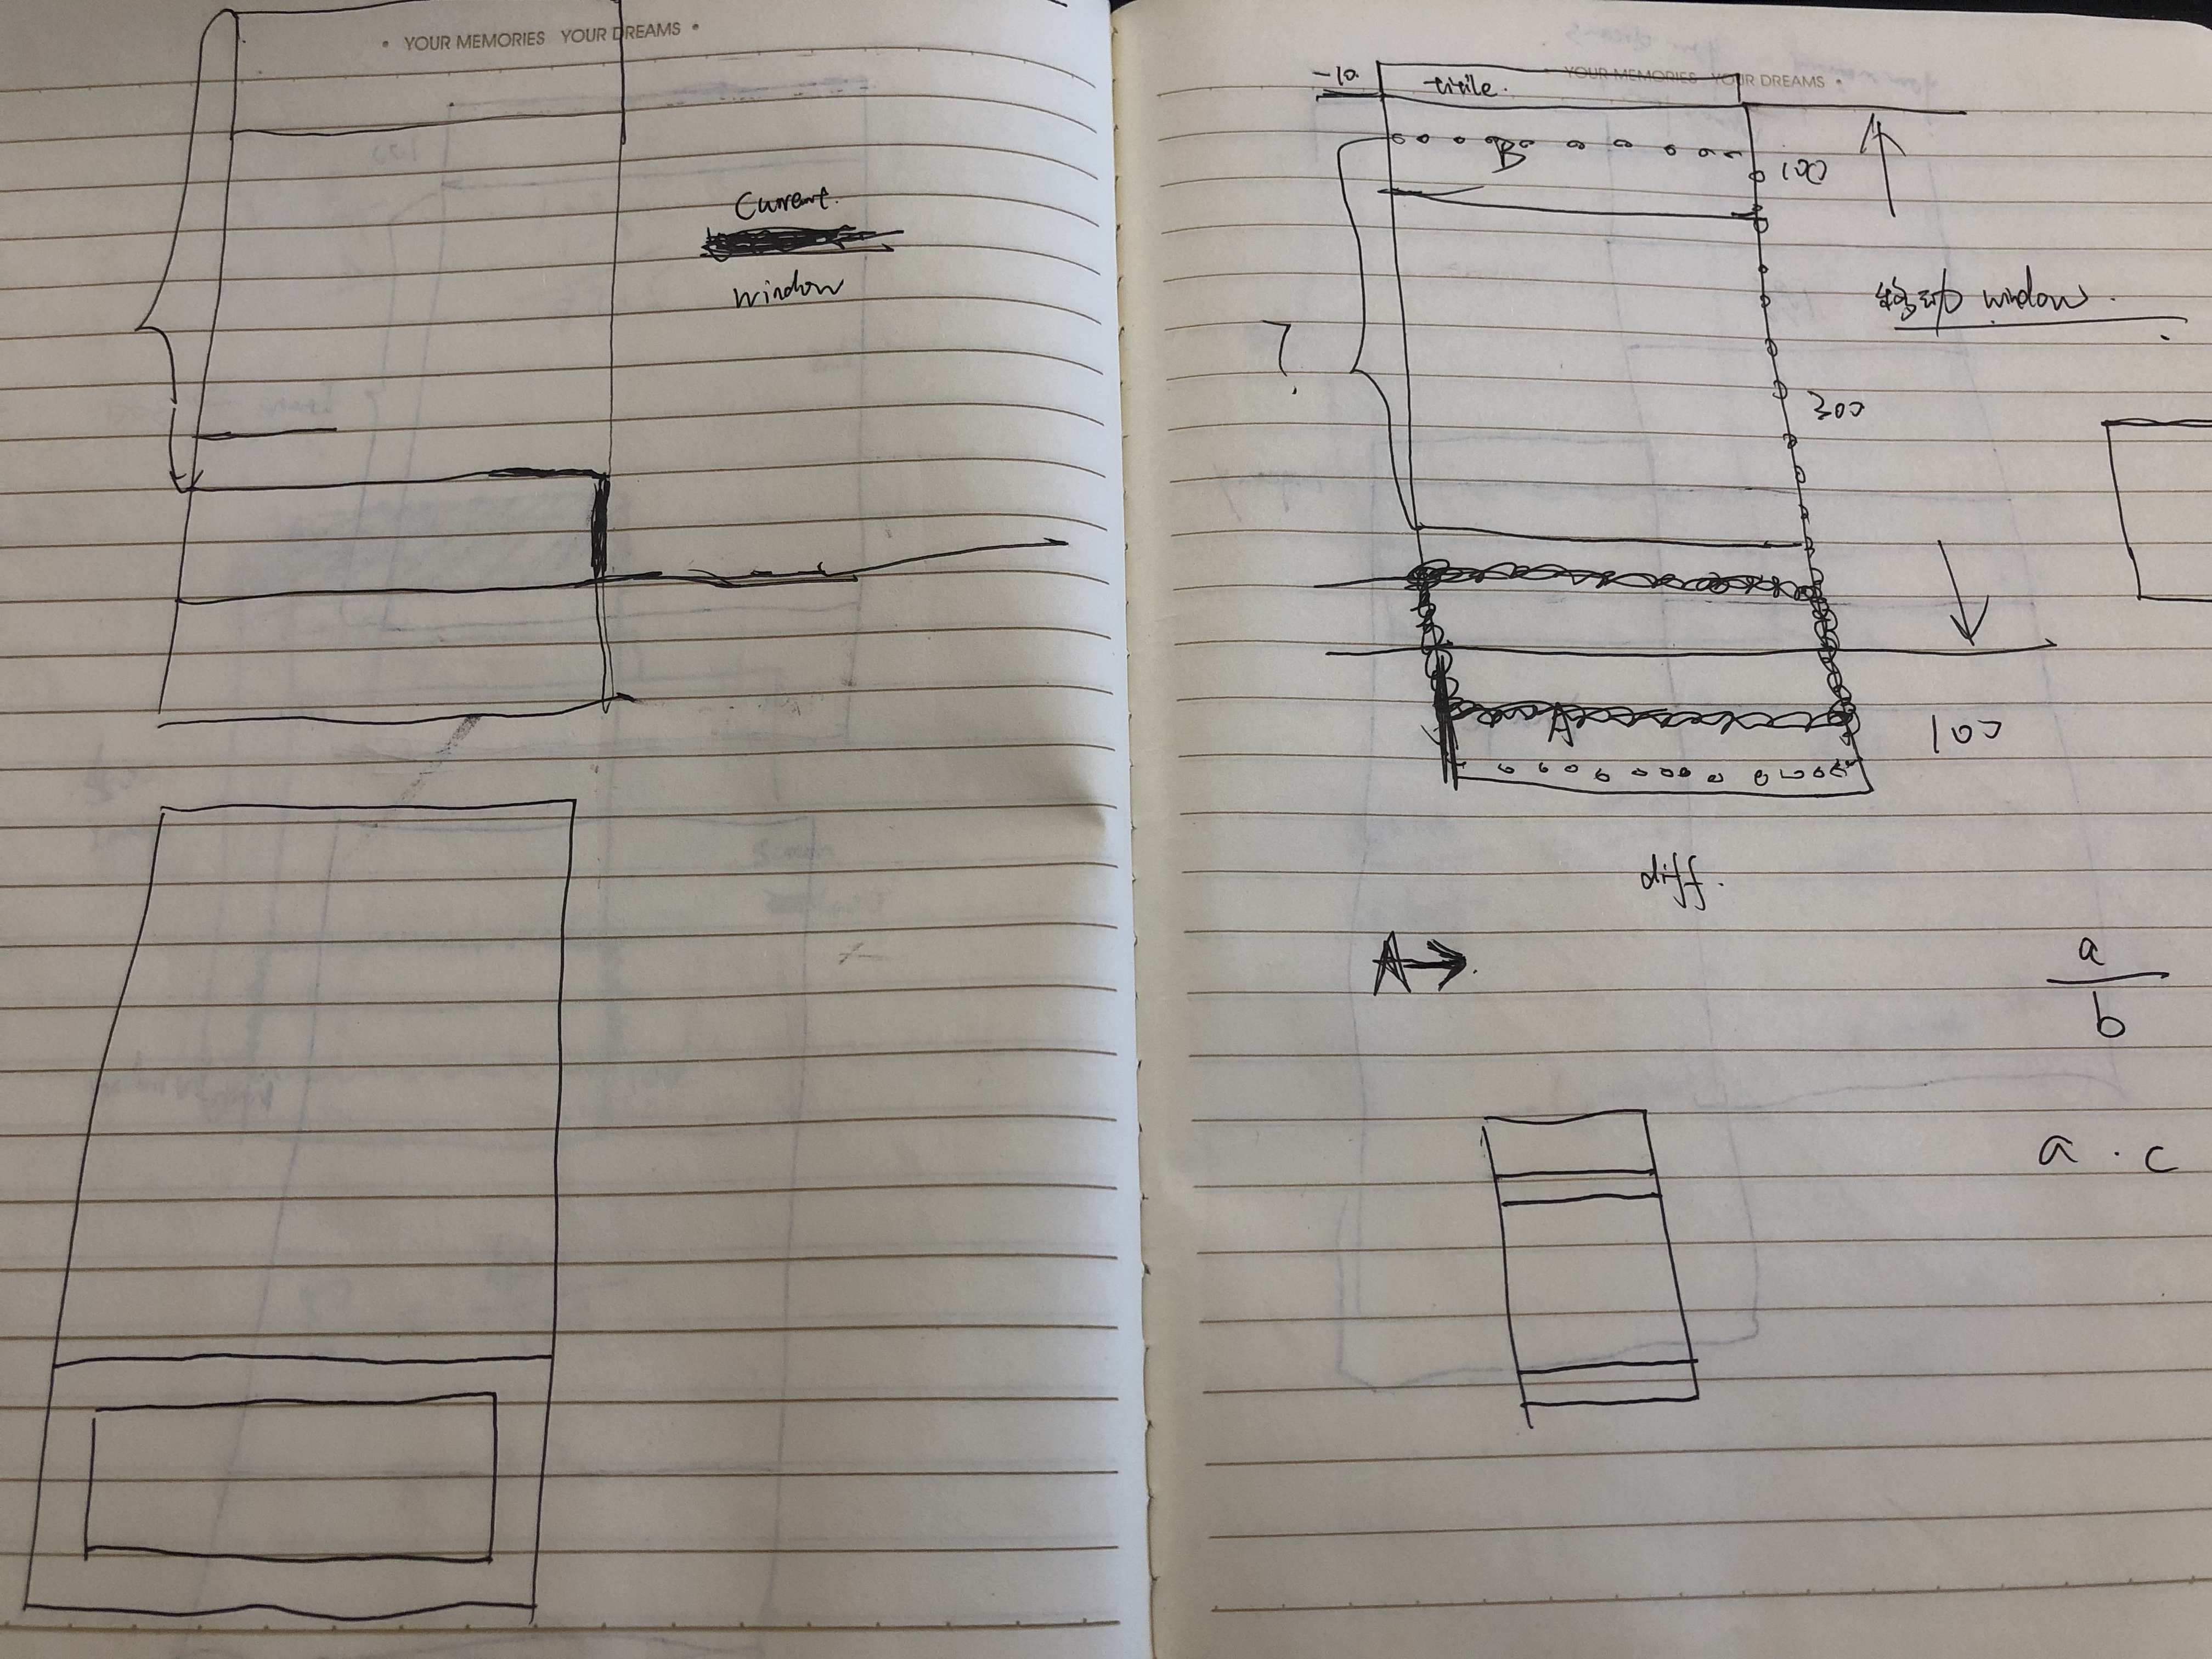 • YOUR MEMORIES YOUR DREAMS •
Current.
window
• YOUR MEMORIES YOUR DREAMS •
-10.
titile.
B
100
移动 window.
?
300
A
100
diff.
A→
a
b
a . c